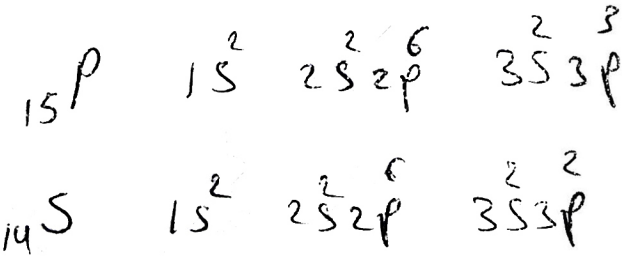 ₁₅P 1s² 2s²2p⁶ 3s²3p³
₁₄S 1s² 2s²2p⁶ 3s²3p²